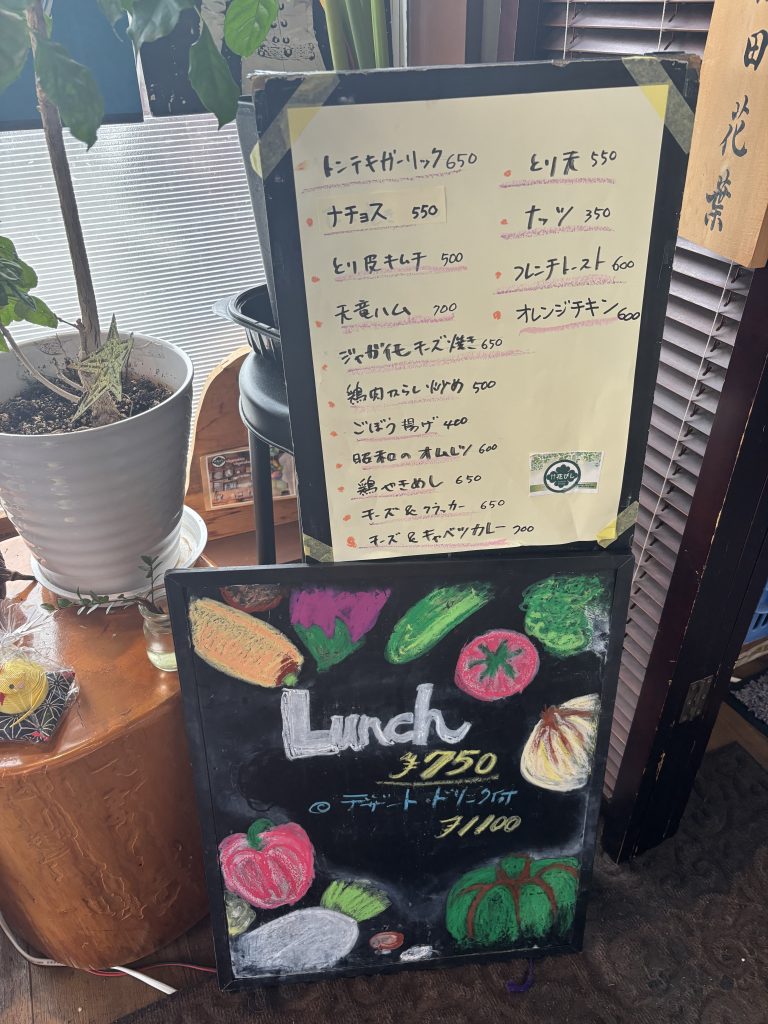 トンテキガーリック 650
ナチョス 550
とり皮キムチ 500
天竜ハム 700
ジャガイモチーズ焼き 650
鶏肉からい炒め 500
ごぼう揚げ 400
昭和のオムレツ 600
鶏やきめし 650
チーズ&クラッカー 650
チーズ&キャベツカレー 700
とり天 550
ナッツ 350
フレンチトースト 600
オレンジチキン 600
田花葉
Lunch
¥750
◎ デザート・ドリンク付
¥1100